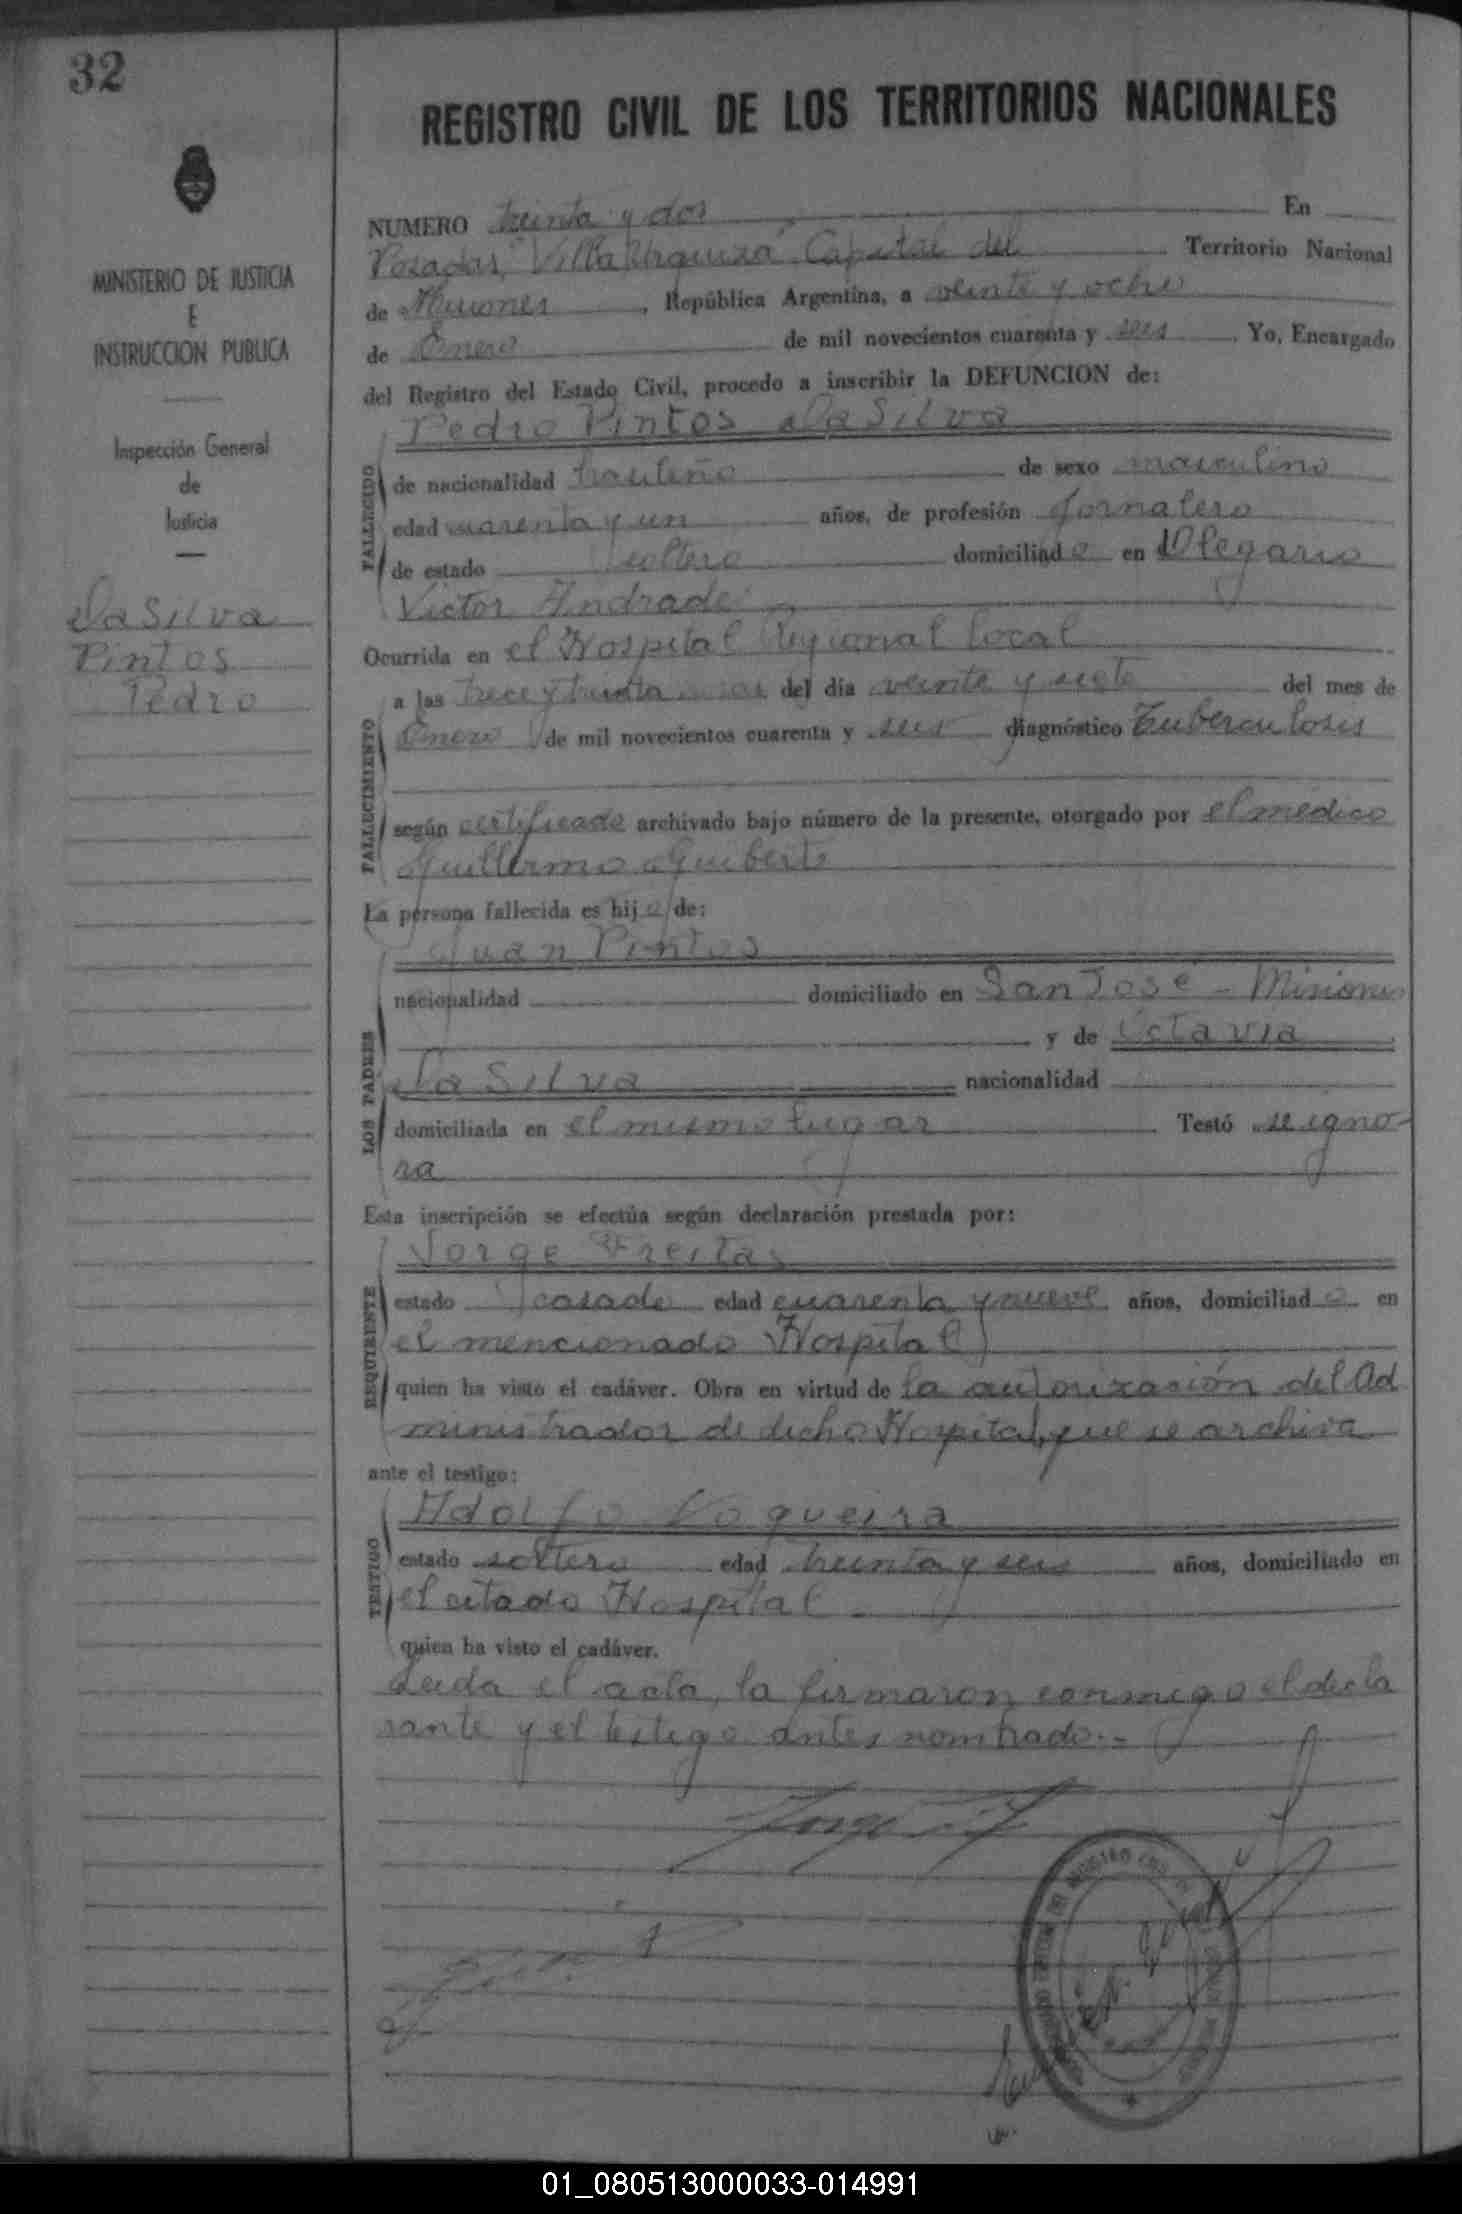 32
MINISTERIO DE JUSTICIA
E
INSTRUCCION PUBLICA
Inspección General
de
Justicia
Da Silva
Pintos
Pedro
REGISTRO CIVIL DE LOS TERRITORIOS NACIONALES
NUMERO treinta y dos En
Posadas, "Villa Urquiza" Capital del Territorio Nacional
de Misiones, República Argentina, a veinte y ocho
de Enero de mil novecientos cuarenta y seis. Yo, Encargado
del Registro del Estado Civil, procedo a inscribir la DEFUNCION de:
Pedro Pintos Da Silva
FALLECIDO
de nacionalidad brasileño de sexo masculino
edad cuarenta y un años, de profesión jornalero
de estado soltero domiciliado en Olegario
Victor Andrade
Ocurrida en el Hospital Regional local
FALLECIMIENTO
a las trece y treinta horas del día veinte y siete del mes de
Enero de mil novecientos cuarenta y seis diagnóstico Tuberculosis
según certificado archivado bajo número de la presente, otorgado por el médico
Guillermo
La persona fallecida es hijo de:
Juan Pintos
LOS PADRES
nacionalidad domiciliado en San José - Misiones
y de Octavia
Da Silva nacionalidad
domiciliada en el mismo lugar Testó se igno-
ra
Esta inscripción se efectúa según declaración prestada por:
Jorge Freitas
REQUIRENTE
estado casado edad cuarenta y nueve años, domiciliado en
el mencionado Hospital
quien ha visto el cadáver. Obra en virtud de la autorización del Ad
ministrador de dicho Hospital, que se archiva
ante el testigo:
Adolfo Nogueira
TESTIGO
estado soltero edad treinta y seis años, domiciliado en
el citado Hospital
quien ha visto el cadáver.
Leida el acta, la firmaron conmigo el decla
rante y el testigo antes nombrado.-
01_080513000033-014991